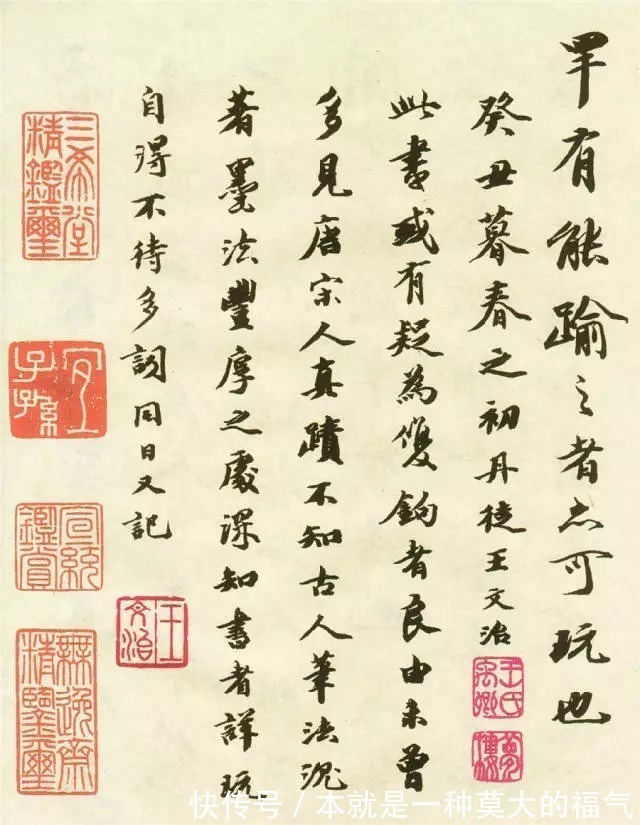 罕有能踰之者亦可玩也
癸丑暮春之初丹徒王文治
王氏禹卿
夢樓
此書或有疑為雙鉤者良由未曾
多見唐宋人真蹟不知古人筆法沉
著墨法豐厚之處深知書者詳玩
自得不待多詞同日又記
王文治
三希堂精鑑璽
宜子孫
宣統鑑賞
無逸齋精鑑璽
快传号/本就是一种莫大的福气